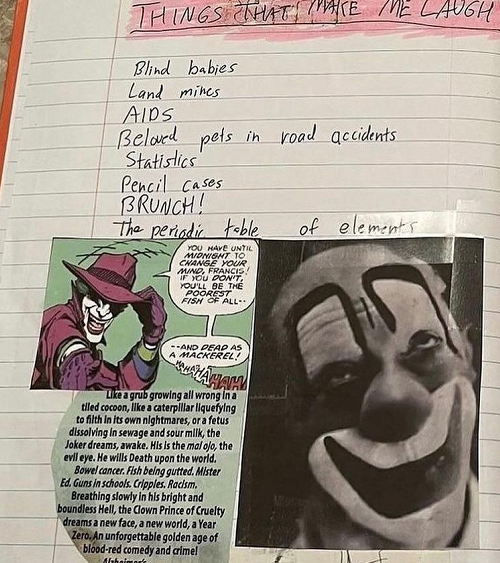 THINGS THAT MAKE ME LAUGH
Blind babies
Land mines
AIDS
Beloved pets in road accidents
Statistics
Pencil cases
BRUNCH!
The periodic table of elements
YOU HAVE UNTIL
MIDNIGHT TO
CHANGE YOUR
MIND, FRANCIS!
IF YOU DON'T,
YOU'LL BE THE
POOREST
FISH OF ALL--
--AND DEAD AS
A MACKEREL!
HAHAHA HAH!
Like a grub growing all wrong in a
tiled cocoon, like a caterpillar liquefying
to filth in its own nightmares, or a fetus
dissolving in sewage and sour milk, the
Joker dreams, awake. His is the mal ojo, the
evil eye. He wills Death upon the world.
Bowel cancer. Fish being gutted. Mister
Ed. Guns in schools. Cripples. Racism.
Breathing slowly in his bright and
boundless Hell, the Clown Prince of Cruelty
dreams a new face, a new world, a Year
Zero. An unforgettable golden age of
blood-red comedy and crime!
Alzheimer's